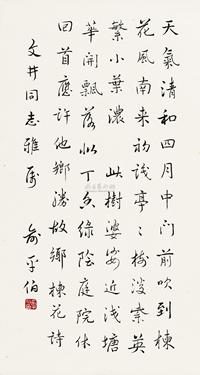 天氣清和四月中门前吹到楝
花風南来初識亭〻樹淡紫英
繁小葉濃 此樹婆娑近浅塘
華開飄落似丁香綠陰庭院休
回首應許他鄉勝故鄉楝花詩
文井同志雅屬 俞平伯